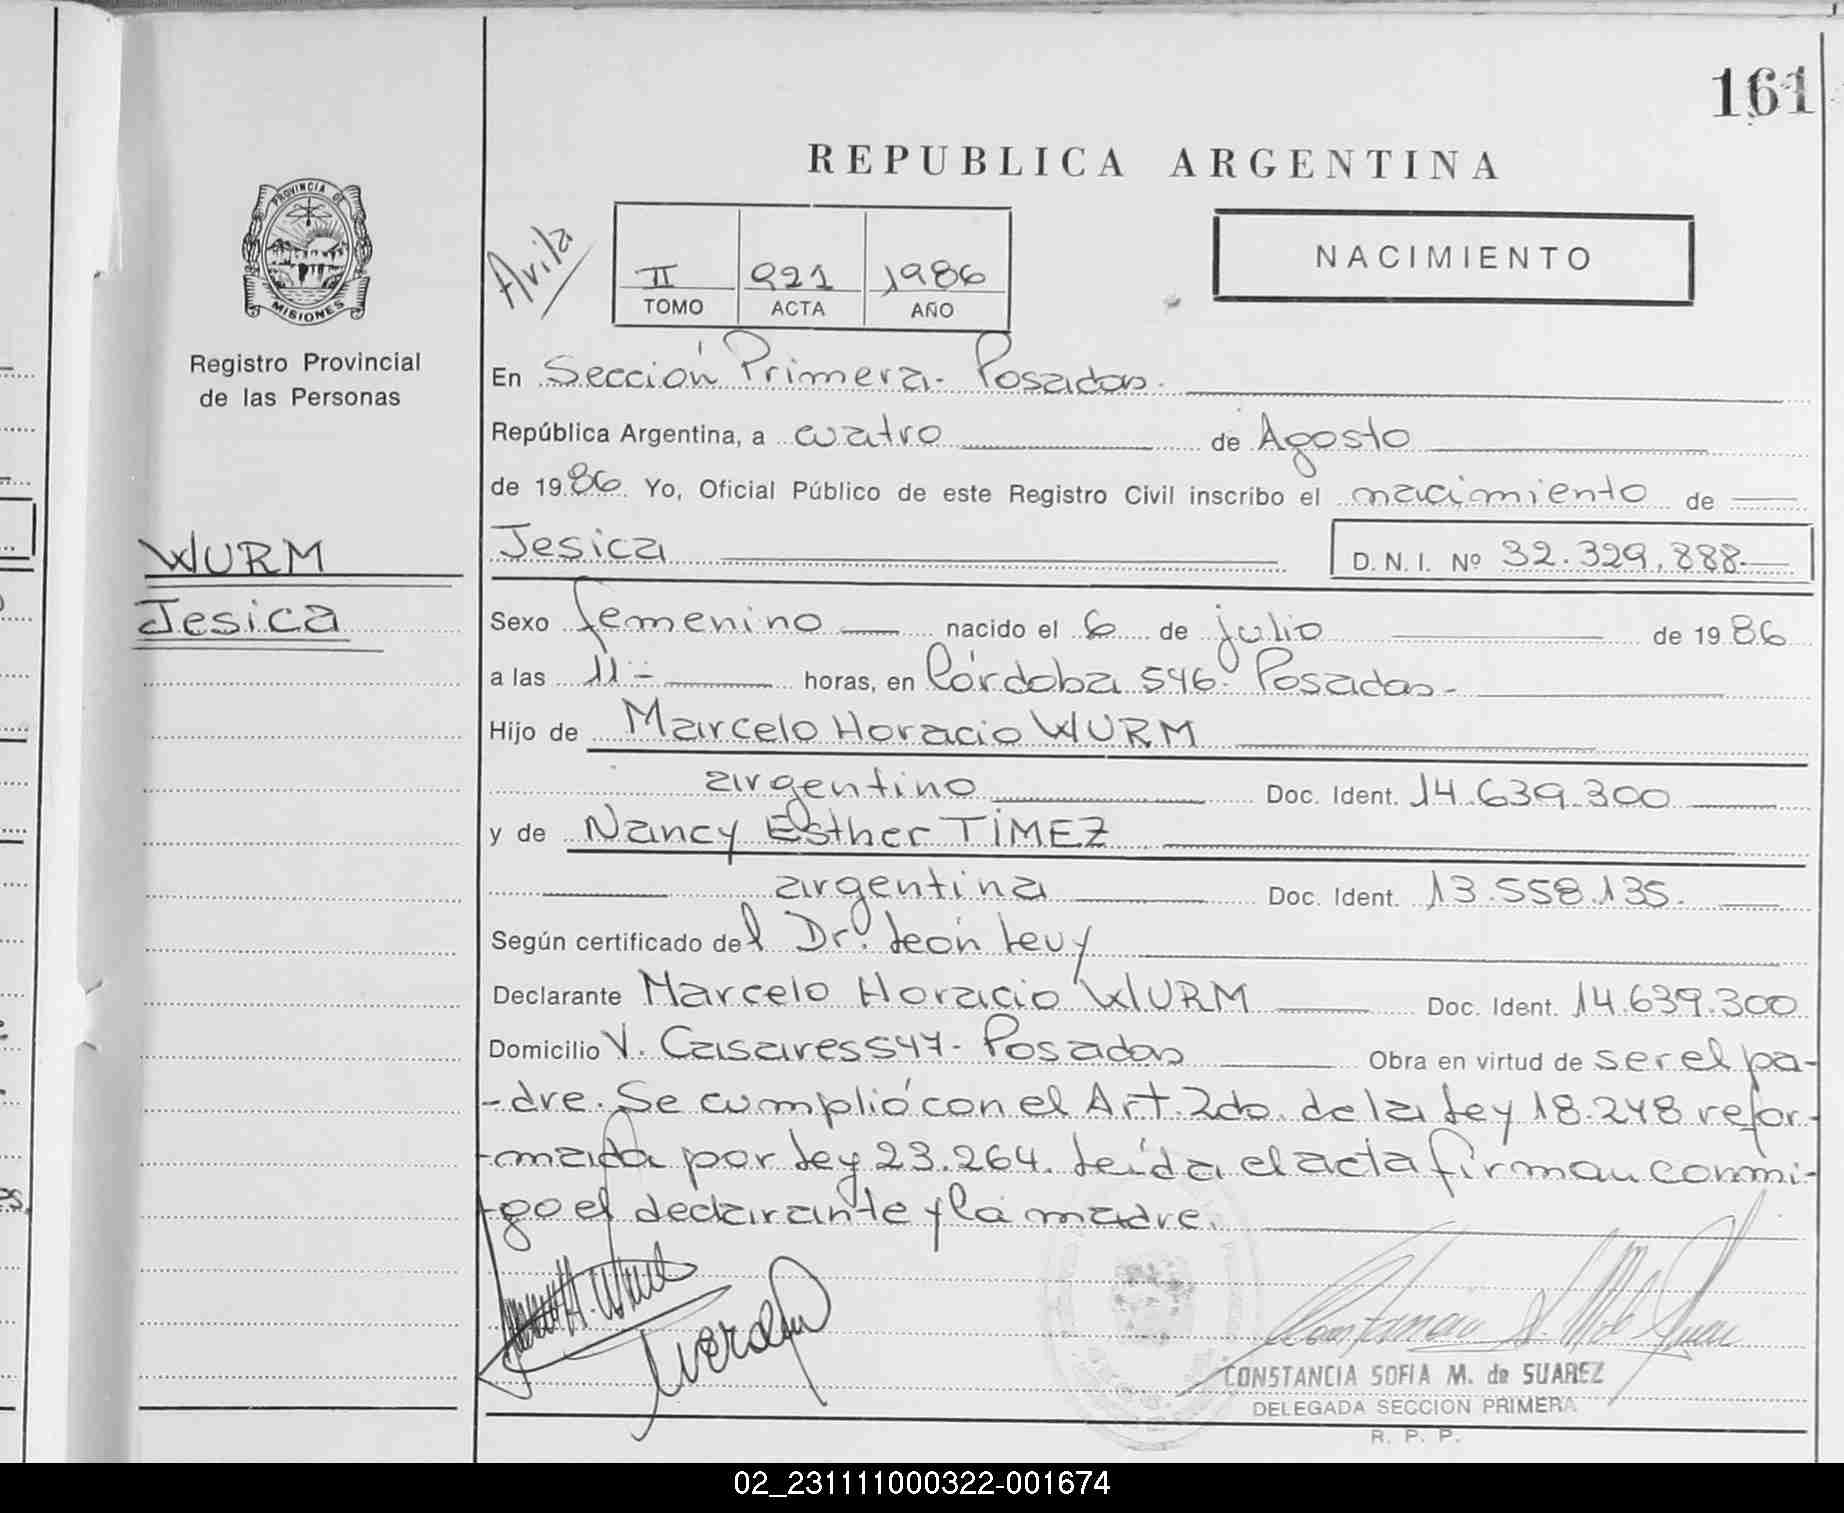 161
REPUBLICA ARGENTINA
PROVINCIA DE
MISIONES
Registro Provincial
de las Personas
WURM
Jesica
Avila
II 921 1986
TOMO ACTA AÑO
NACIMIENTO
En Sección Primera - Posadas.
República Argentina, a cuatro de Agosto
de 1986. Yo, Oficial Público de este Registro Civil inscribo el nacimiento de
Jesica D. N. I. Nº 32.329.888.
Sexo femenino nacido el 6 de julio de 1986
a las 11 - horas, en Córdoba 546 - Posadas -
Hijo de Marcelo Horacio WURM
argentino Doc. Ident. 14.639.300
y de Nancy Esther TIMEZ
argentina Doc. Ident. 13.558.135.
Según certificado del Dr. León Levy
Declarante Marcelo Horacio WURM Doc. Ident. 14.639.300
Domicilio V. Casares 547 - Posadas Obra en virtud de ser el pa-
-dre. Se cumplió con el Art. 2do. de la Ley 18.248 refor-
-mada por Ley 23.264. Leída el acta firman conmi-
-go el declarante y la madre.
CONSTANCIA SOFIA M. de SUAREZ
DELEGADA SECCION PRIMERA
R. P. P.
02_231111000322-001674